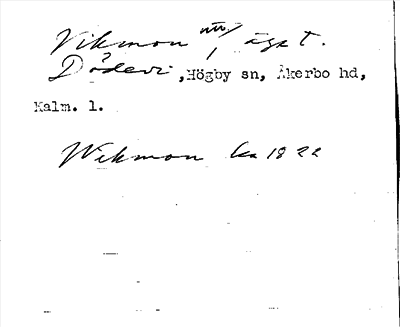 Vikmon ägt.
Dödevi, Högby sn, Åkerbo hd,
Kalm. l.
Wikmon ka 1822